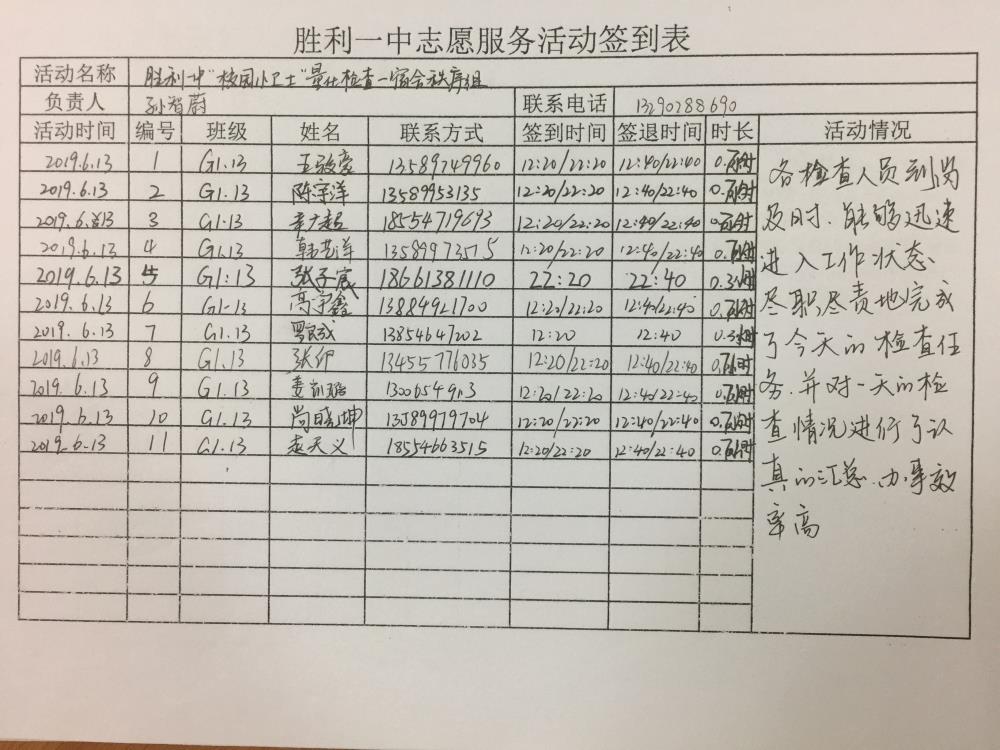 胜利一中志愿服务活动签到表
活动名称 胜利一中"校园小卫士"量化检查-宿舍秩序组
负责人 孙智蔚 联系电话 13290288690
活动时间 编号 班级 姓名 联系方式 签到时间 签退时间 时长 活动情况
2019.6.13 1 G1.13 13589749960 12:20/22:20 12:40/22:40
2019.6.13 2 G1.13 陈宇洋 13589953135 12:20/22:20 12:40/22:40
2019.6.13 3 G1.13 18554719693 12:20/22:20 12:40/22:40
2019.6.13 4 G1.13 韩艺洋 13589973575 12:20/22:20 12:40/22:40
2019.6.13 5 G1:13 张子宸 18661381110 22:20 22:40
2019.6.13 6 G1-13 高宇鑫 13884921700 12:20/22:20 12:40/22:40
2019.6.13 7 G1.13 13854647202 12:20 12:40
2019.6.13 8 G1.13 张 13455776035 12:20/22:20 12:40/22:40
2019.6.13 9 G1.13 12:20/22:20 12:40/22:40
2019.6.13 10 G1.13 尚晓坤 13589979704 12:20/22:20 12:40/22:40
2019.6.13 11 G1.13 赵天义 18554663515 12:20/22:20 12:40/22:40
各检查人员到岗
及时.能够迅速
进入工作状态
尽职尽责地完成
了今天的检查任
务.并对一天的检
查情况进行了认
真的汇总.办事效
率高